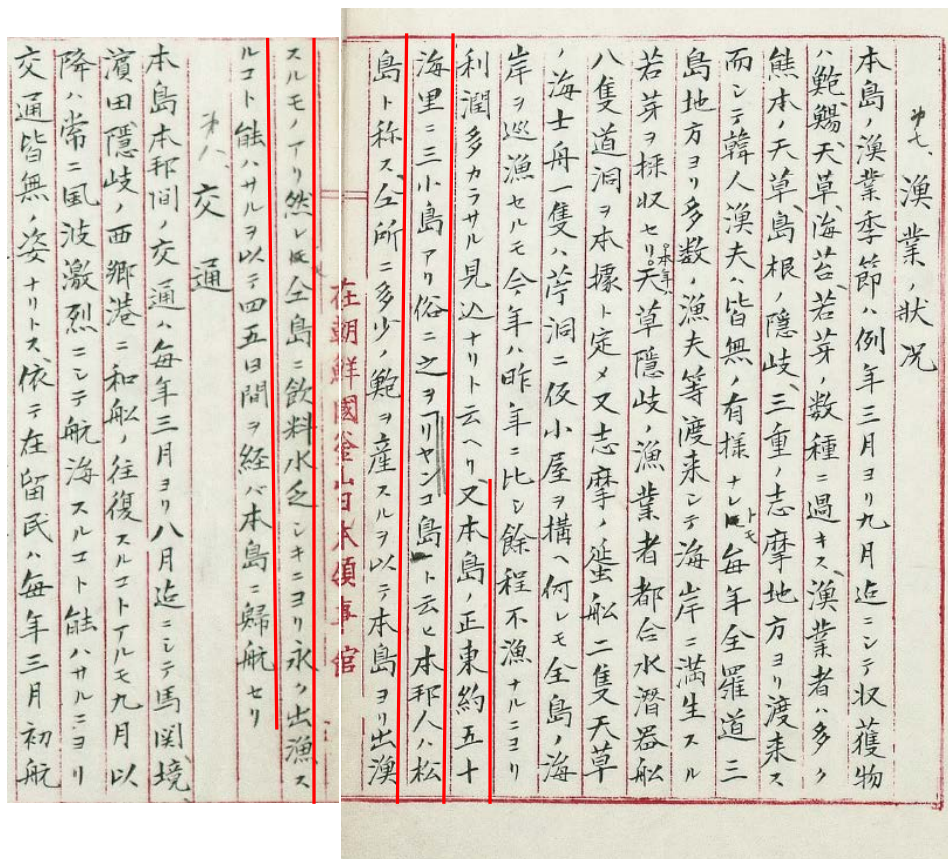 第七、漁業ノ状況
本島ノ漁業季節ハ例年三月ヨリ九月迠ニシテ収獲物
ハ鮑、鰑、天草、海苔、若芽ノ数種ニ過キス、漁業者ハ多ク
熊本ノ天草、島根ノ隠岐、三重ノ志摩地方ヨリ渡来ス
而シテ韓人漁夫ハ皆無ノ有様ナレトモ毎年全羅道三
島地方ヨリ多数ノ漁夫等渡来シテ海岸ニ満生スル
若芽ヲ採収セリ。本年ハ天草隠岐ノ漁業者都合水潜器船
八隻道洞ヲ本據ト定メ又志摩ノ蜑船二隻天草
ノ海士舟一隻ハ苧洞ニ仮小屋ヲ構ヘ何レモ全島ノ海
岸ヲ巡漁セルモ今年ハ昨年ニ比シ餘程不漁ナルニヨリ
利潤多カラサル見込ナリト云ヘリ又本島ノ正東約五十
海里ニ三小島アリ俗ニ之ヲリヤンコ島ト云ヒ本邦人ハ松
島ト称ス、仝所ニ多少ノ鮑ヲ産スルヲ以テ本島ヨリ出漁
在朝鮮國釜山日本領事館
スルモノアリ然レ𪜈仝島ニ飲料水乏シキニヨリ永ク出漁ス
ルコト能ハサルヲ以テ四五日間ヲ経バ本島ニ歸航セリ
第八、交通
本島本邦間ノ交通ハ毎年三月ヨリ八月迠ニシテ馬関、境、
濱田、隠岐ノ西郷港ニ和船ノ往復スルコトアルモ九月以
降ハ常ニ風波激烈ニシテ航海スルコト能ハサルニヨリ
交通皆無ノ姿ナリトス、依テ在留民ハ毎年三月初航